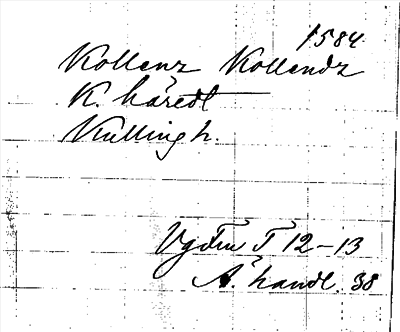 1584
Kollenz Kollendz
K. häredt
Kulling h.
12-13
Ä. handl. 38